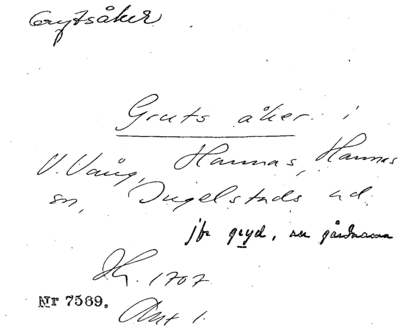 Grytsåker
Gruts åker i
V. Vång, Hannas, Hannas
sn, Ingelstads hd.
jfr gryd, nu gårdarna
Jb. 1707
Nr 7569.
Avt 1.